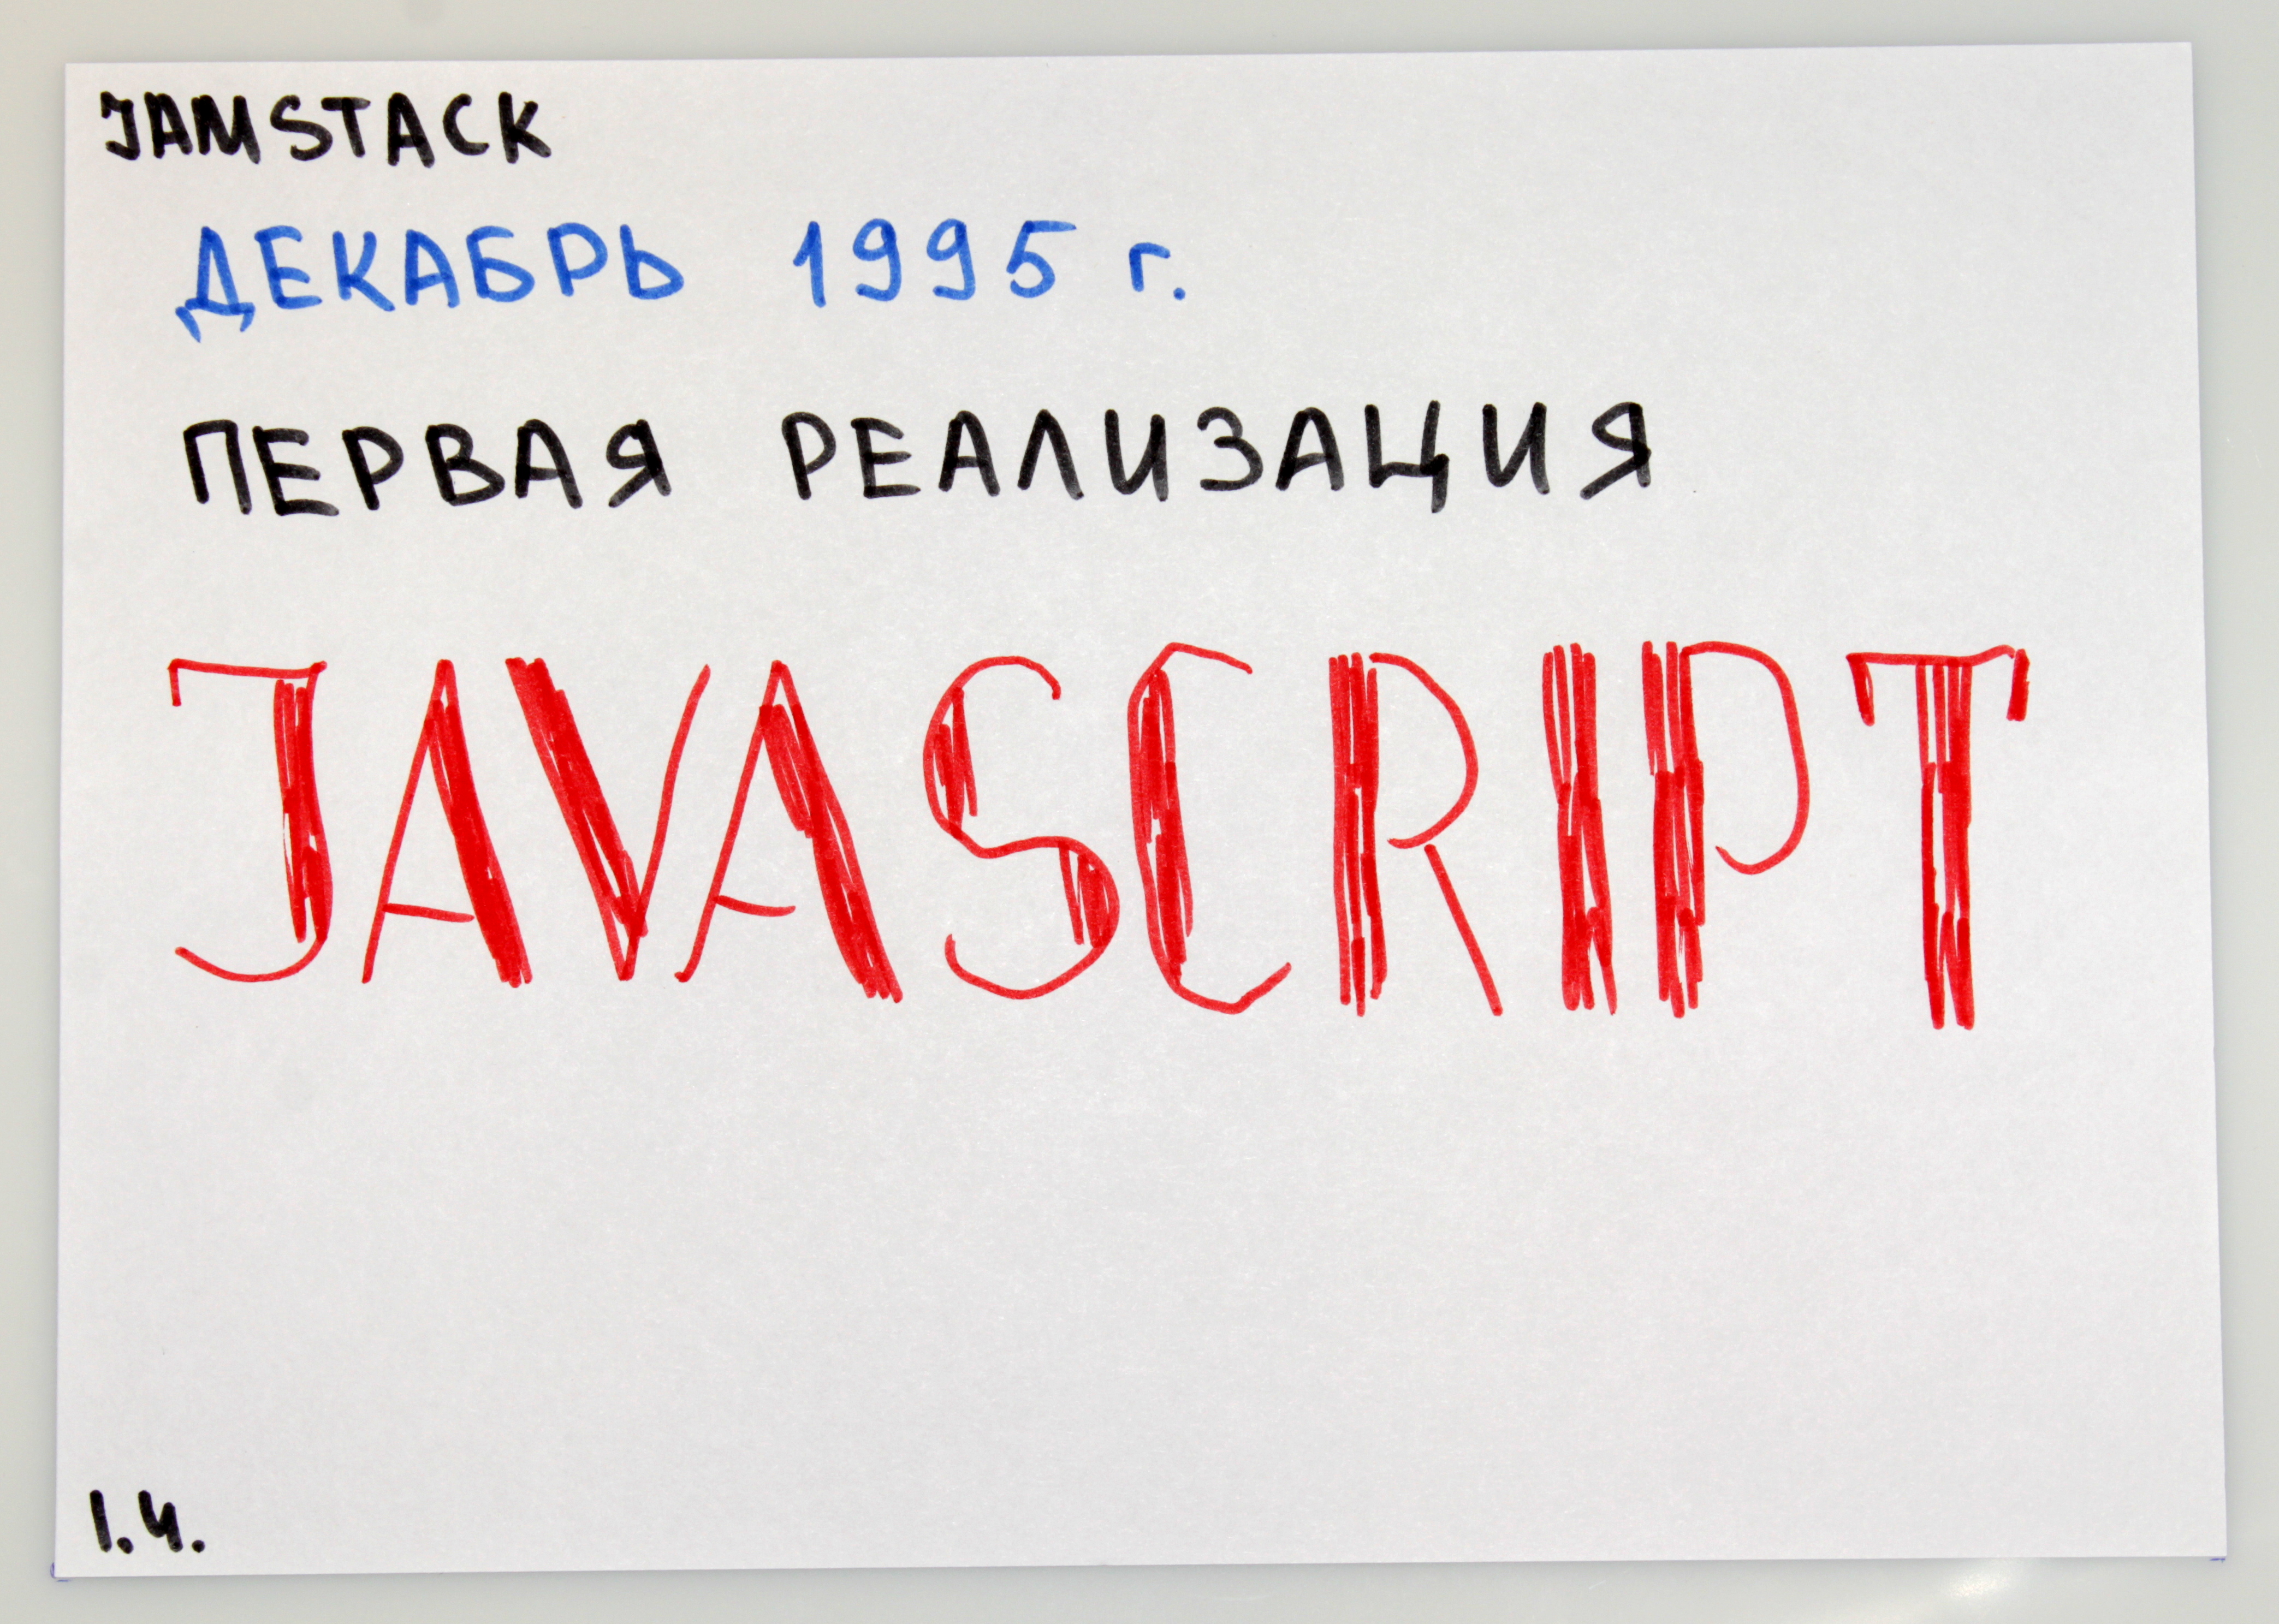 JAMSTACK
ДЕКАБРЬ 1995 г.
ПЕРВАЯ РЕАЛИЗАЦИЯ
JAVASCRIPT
1.4.